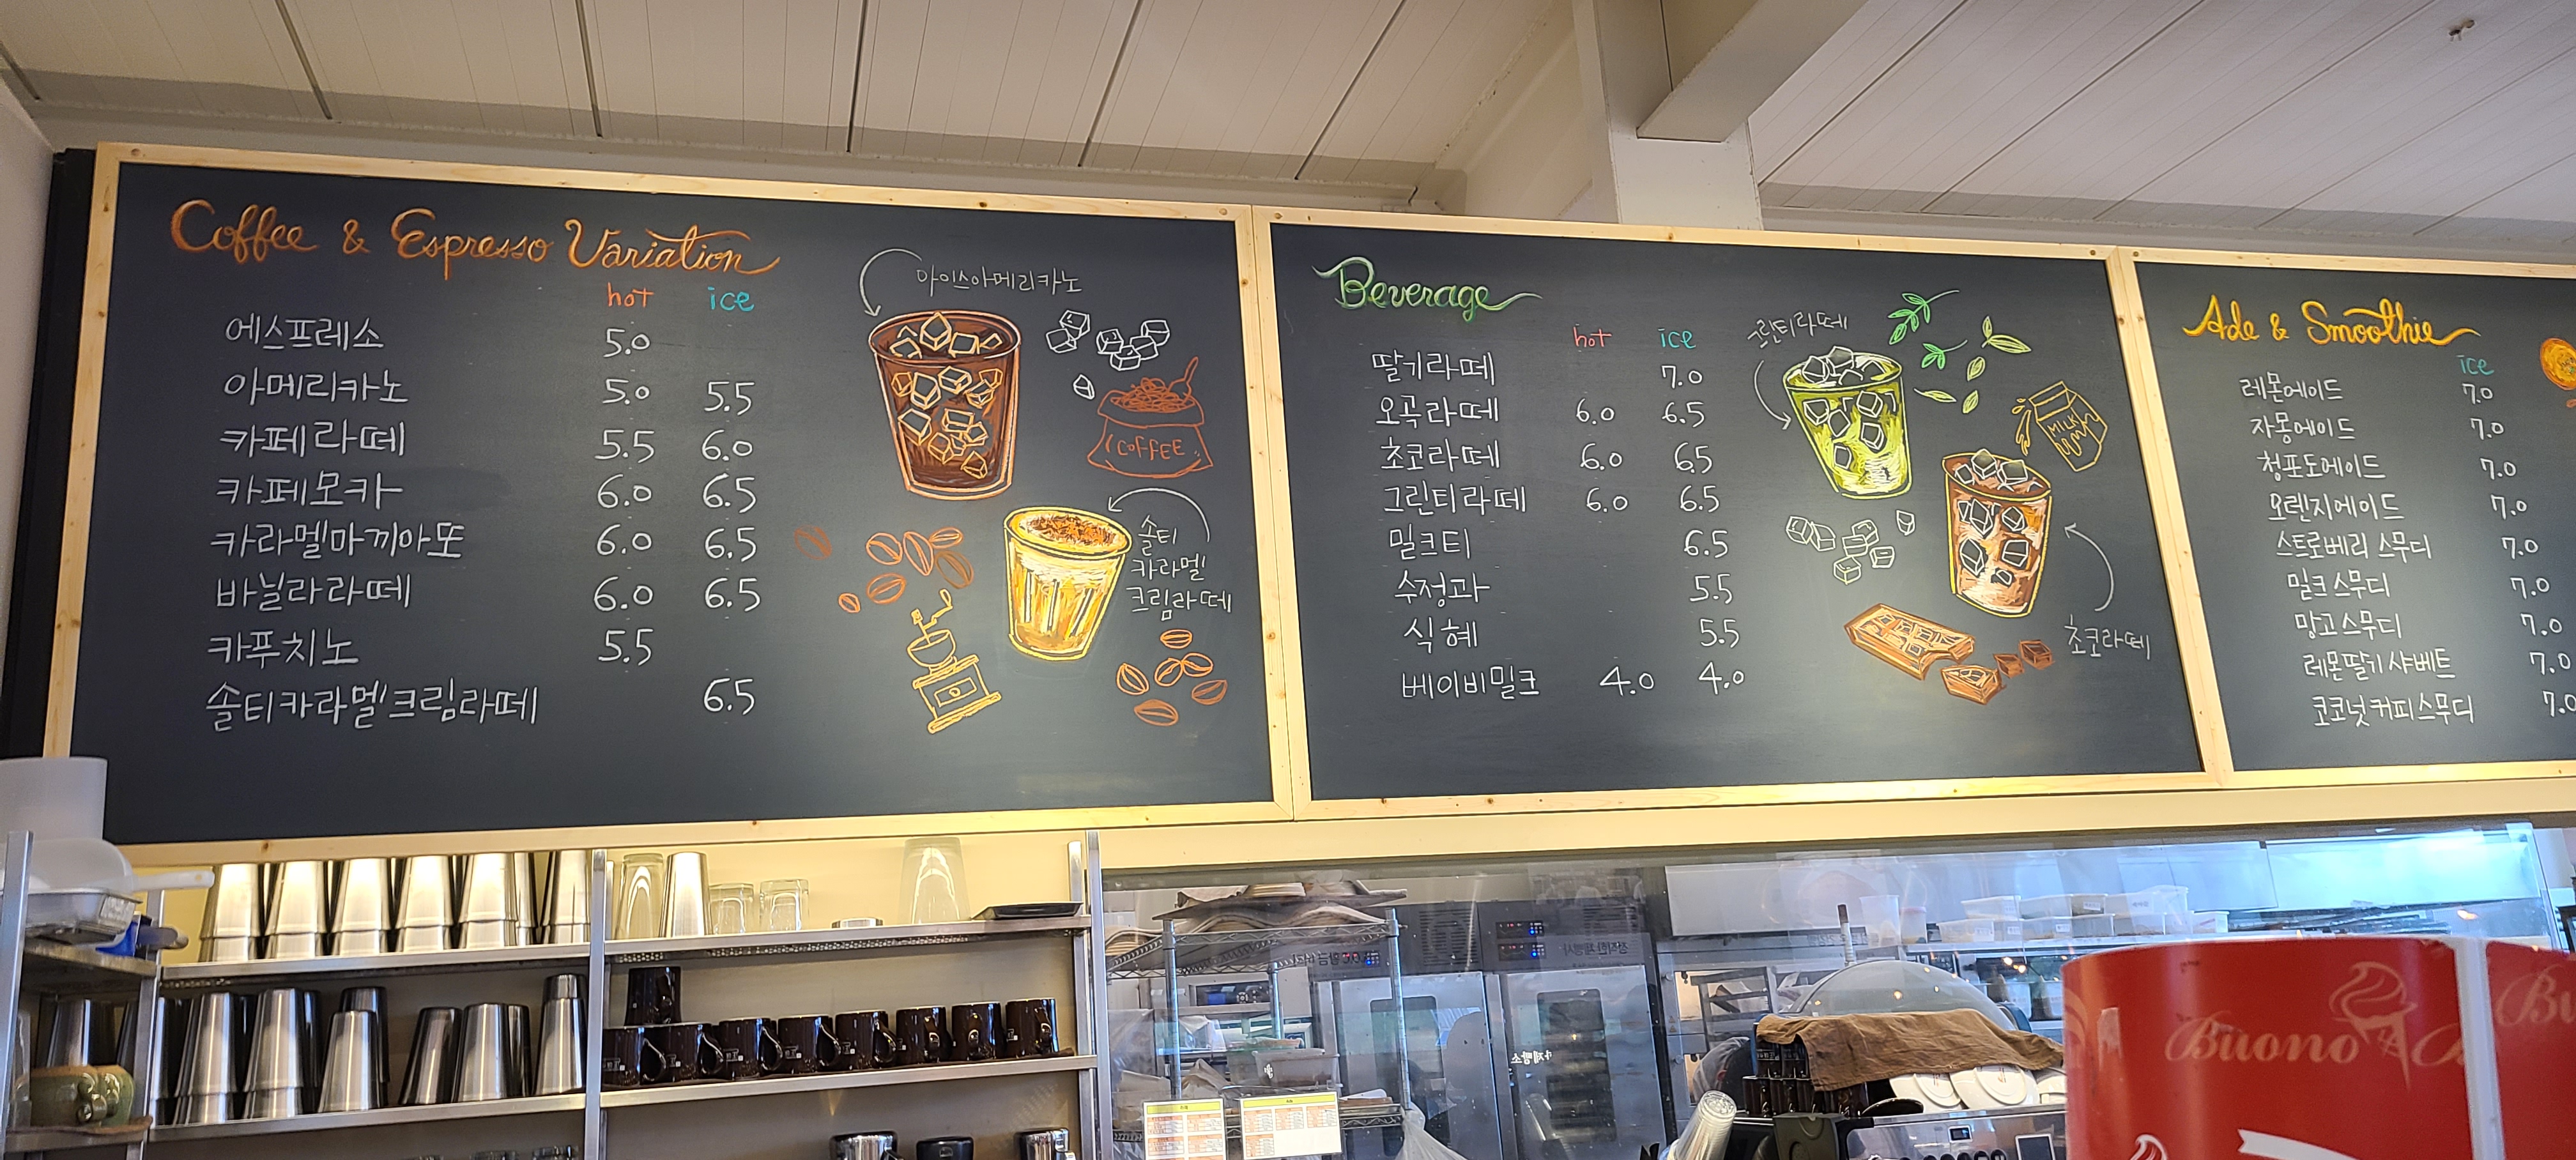 Coffee & Espresso Variation
hot ice
에스프레소 5.0
아메리카노 5.0 5.5
카페라떼 5.5 6.0
카페모카 6.0 6.5
카라멜마끼아또 6.0 6.5
바닐라라떼 6.0 6.5
카푸치노 5.5
솔티카라멜크림라떼 6.5
아이스아메리카노
COFFEE
솔티
카라멜
크림라떼
Beverage
hot ice
딸기라떼 7.0
오곡라떼 6.0 6.5
초코라떼 6.0 6.5
그린티라떼 6.0 6.5
밀크티 6.5
수정과 5.5
식혜 5.5
베이비밀크 4.0 4.0
그린티라떼
MILK
초코라떼
Ade & Smoothie
ice
레몬에이드 7.0
자몽에이드 7.0
청포도에이드 7.0
오렌지에이드 7.0
스트로베리 스무디 7.0
밀크 스무디 7.0
망고 스무디 7.0
레몬딸기 샤베트 7.0
코코넛커피스무디 7.0
Buono